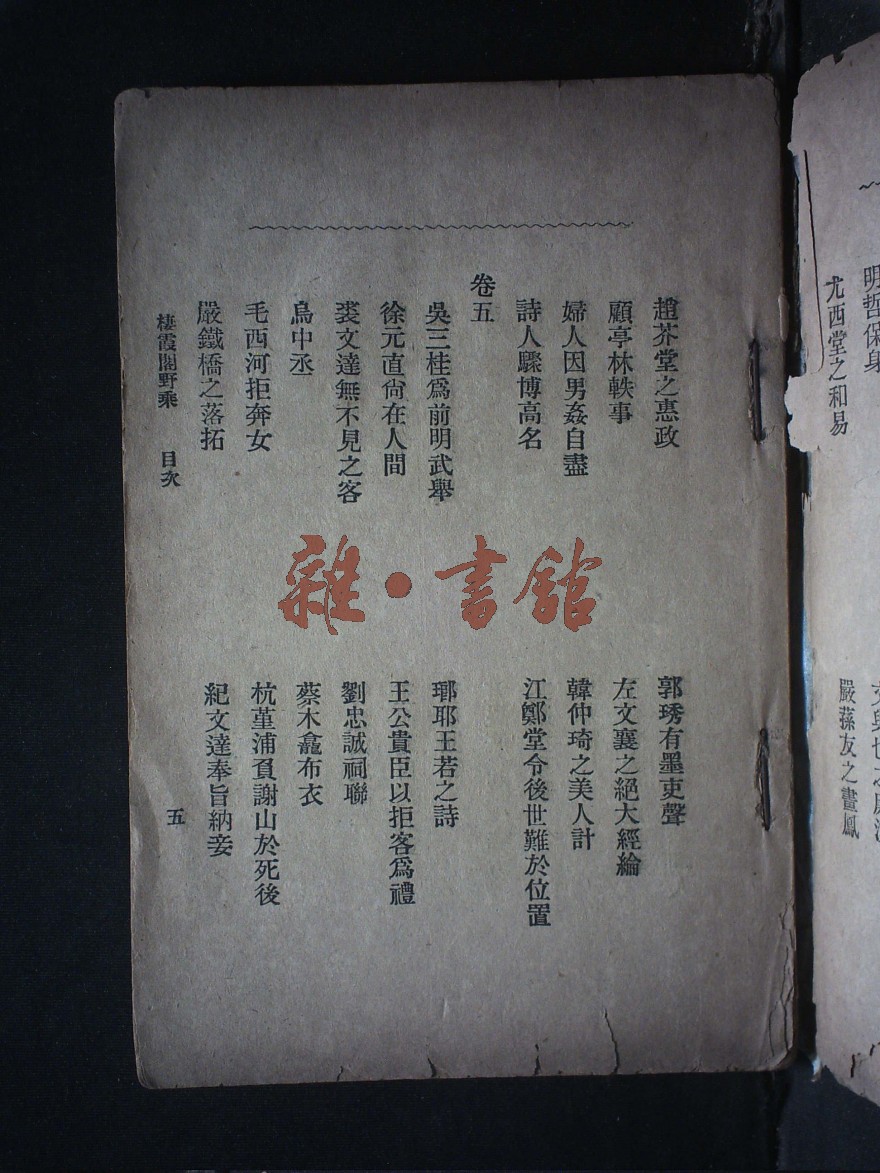 明哲保身
尤西堂之和易
嚴蓀友之畫鳳
趙芥堂之惠政
郭琇有墨吏聲
顧亭林軼事
左文襄之絕大經綸
婦人因男姦自盡
韓仲琦之美人計
詩人驟博高名
江鄭堂令後世難於位置
卷五
吳三桂爲前明武舉
瑯耶王若之詩
徐元直尙在人間
王公貴臣以拒客爲禮
裘文達無不見之客
劉忠誠祠聯
烏中丞
蔡木龕布衣
毛西河拒奔女
杭堇浦負謝山於死後
嚴鐵橋之落拓
紀文達奉旨納妾
棲霞閣野乘 目次 五
雜·書館